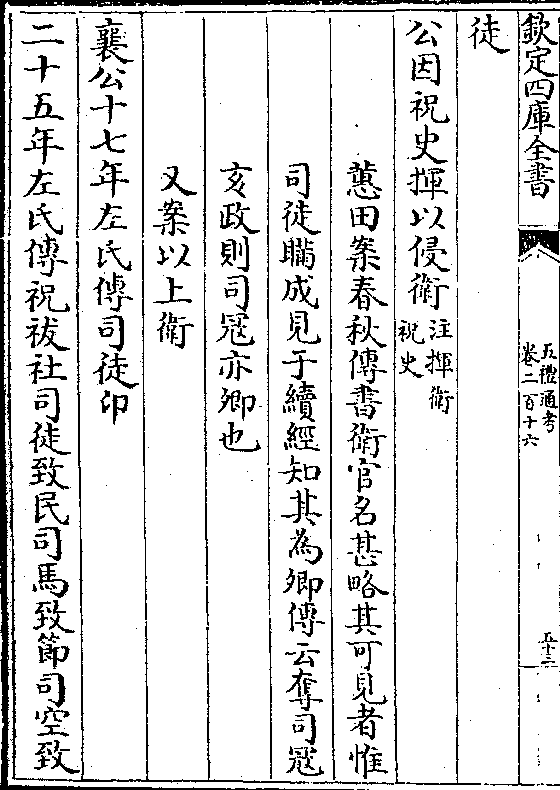 欽定四庫全書
五禮通考
卷二百十六
五十三
徒
公因祝史揮以侵衛注揮衛
祝史
蕙田案春秋傳書衛官名甚略其可見者惟
司徒瞞成見于續經知其為卿傳云奪司冦
亥政則司冦亦卿也
又案以上衛
襄公十七年左氏傳司徒卬
二十五年左氏傳祝祓社司徒致民司馬致節司空致